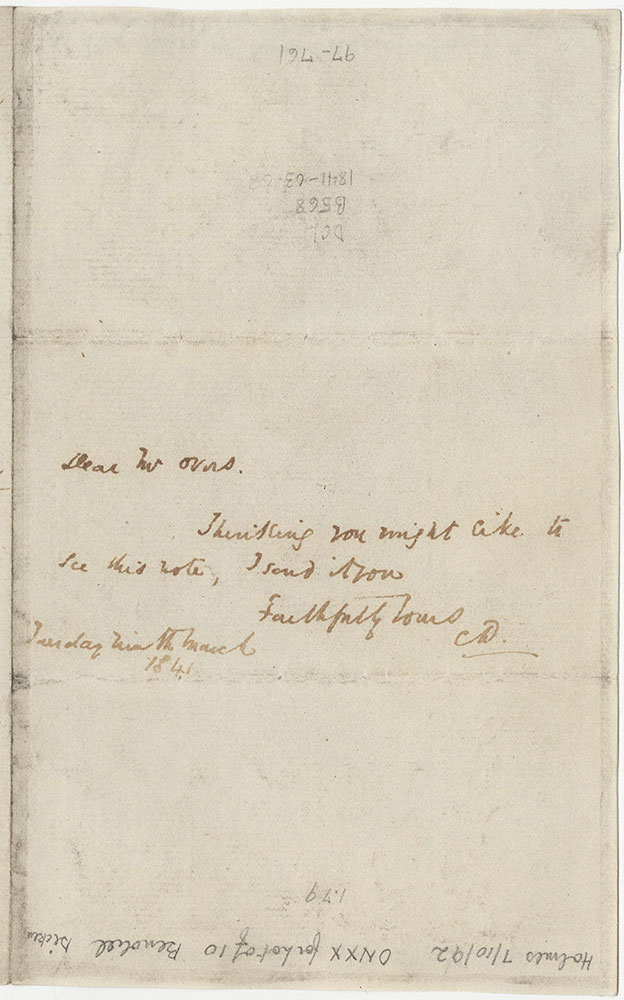 97-761
1841-03-
B568
DCl
Dear Mr Overs.
Thinking you might like to
see this note, I send it you
Faithfully Yours
CD.
Tuesday Ninth March
1841.
1.79
Holmes 7/10/92 ONXX for lot of 10 Benoliel Dicken